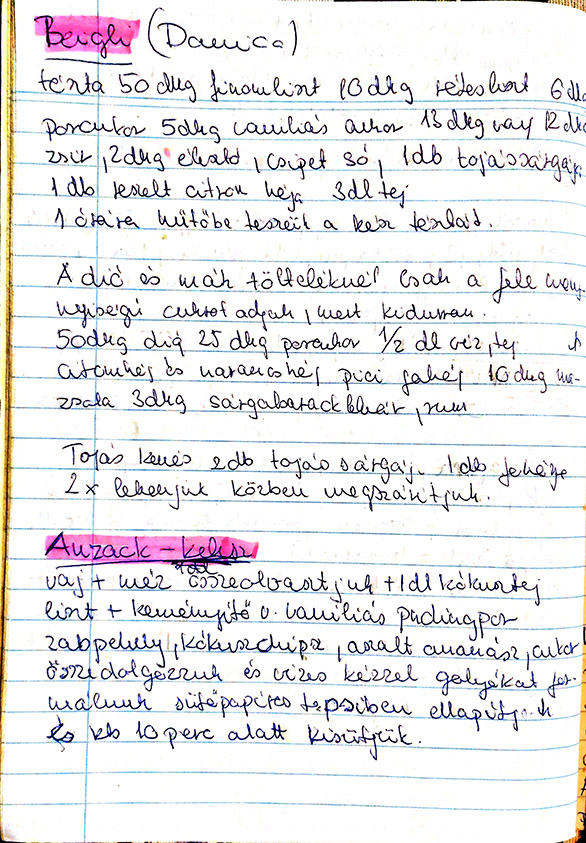 Beigli (Danica)
tészta 50 dkg finomliszt 10 dkg rétesliszt 6 dk
porcukor 5dkg vaniliás cukor 13 dkg vaj 12 dk
zsír, 2dkg élesztő, csipet só, 1db tojássárgája
1 db reszelt citrom héja 3dl tej
1 órára hűtőbe tesszük a kész tésztát.
A dió és mák tölteléknél csak a fele meny-
nyiségű cukrot adjuk, mert kidurran.
50dkg dió 25 dkg porcukor 1/2 dl víz, tej
citromhéj és narancshéj pici fahéj 10 dkg ma-
zsola 3dkg sárgabaracklekvár, rum
Tojás kenés 2db tojás sárgáj. 1 db fehérje
2x lekenjük közben megszárítjuk.
Anzack - keksz
vaj + méz összeolvasztjuk + 1dl kókusztej
liszt + keményítő v. vaniliás pudingpor
zabpehely, kókuszchips, aszalt ananász, cukor
összedolgozzuk és vizes kézzel golyókat for-
málunk sütőpapíros tepsiben ellapítjuk
és kb 10 perc alatt kisütjük.